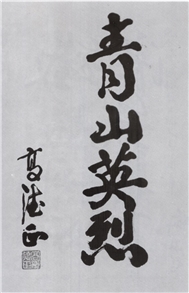 青山英烈
高德正